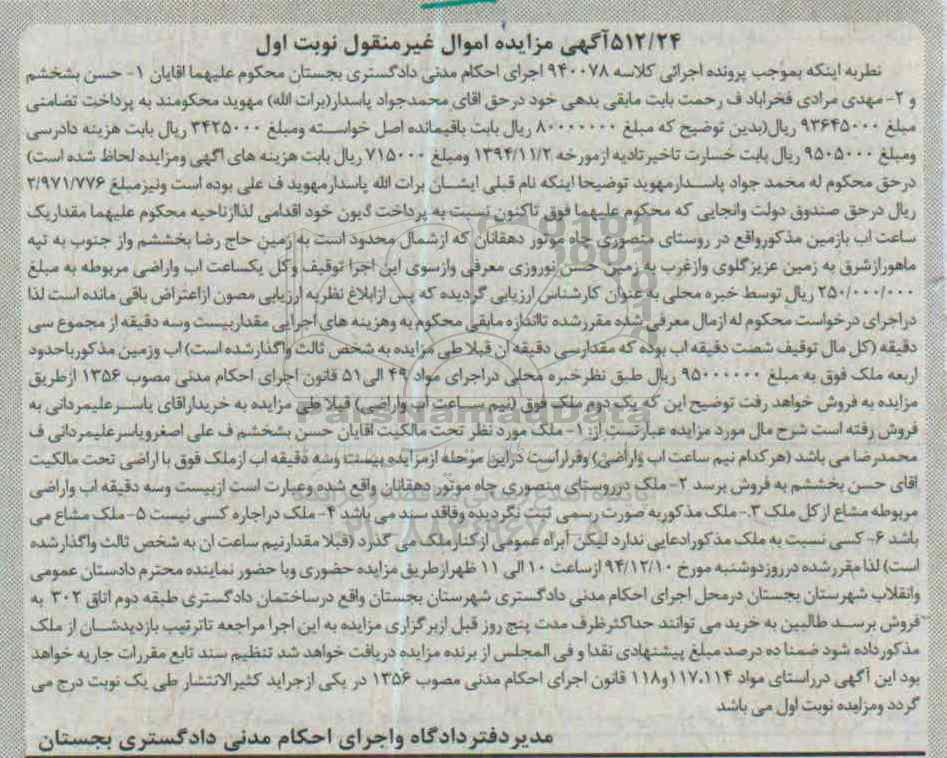 ۵۱۲/۲۴آگهی مزایده اموال غیرمنقول نوبت اول
نظربه اینکه بموجب پرونده اجرائی کلاسه ۹۴۰۰۷۸ اجرای احکام مدنی دادگستری بجستان محکوم علیهما اقایان ۱- حسن بشخشم
و ۲- مهدی مرادی فخراباد ف رحمت بابت مابقی بدهی خود درحق اقای محمدجواد پاسدار(برات الله) مهوید محکومند به پرداخت تضامنی
مبلغ ۹۳۶۴۵۰۰۰ ریال(بدین توضیح که مبلغ ۸۰۰۰۰۰۰۰ ریال بابت باقیمانده اصل خواسته ومبلغ ۳۴۲۵۰۰۰ ریال بابت هزینه دادرسی
ومبلغ ۹۵۰۵۰۰۰ ریال بابت خسارت تاخیرتادیه ازمورخه ۱۳۹۴/۱۱/۲ ومبلغ ۷۱۵۰۰۰ ریال بابت هزینه های اگهی ومزایده لحاظ شده است)
درحق محکوم له محمد جواد پاسدارمهوید توضیحا اینکه نام قبلی ایشان برات الله پاسدارمهوید ف علی بوده است ونیزمبلغ ۲/۹۷۱/۷۷۶
ریال درحق صندوق دولت وانجایی که محکوم علیهما فوق تاکنون نسبت به پرداخت دیون خود اقدامی لذاازناحیه محکوم علیهما مقداریک
ساعت اب بازمین مذکورواقع در روستای منصوری چاه موتور دهقانان که ازشمال محدود است به زمین حاج رضا بخششم واز جنوب به تپه
ماهورازشرق به زمین عزیزگلوی وازغرب به زمین حسن نوروزی معرفی وازسوی این اجرا توقیف وکل یکساعت اب واراضی مربوطه به مبلغ
۲۵۰/۰۰۰/۰۰۰ ریال توسط خبره محلی به عنوان کارشناس ارزیابی گردیده که پس ازابلاغ نظریه ارزیابی مصون ازاعتراض باقی مانده است لذا
دراجرای درخواست محکوم له ازمال معرفی شده مقررشده تااندازه مابقی محکوم به وهزینه های اجرایی مقداربیست وسه دقیقه از مجموع سی
دقیقه (کل مال توقیف شصت دقیقه اب بوده که مقدارسی دقیقه ان قبلا طی مزایده به شخص ثالث واگذارشده است) اب وزمین مذکورباحدود
اربعه ملک فوق به مبلغ ۹۵۰۰۰۰۰۰ ریال طبق نظرخبره محلی دراجرای مواد ۴۹ الی ۵۱ قانون اجرای احکام مدنی مصوب ۱۳۵۶ ازطریق
مزایده به فروش خواهد رفت توضیح این که یک دوم ملک فوق (نیم ساعت اب واراضی) قبلا طی مزایده به خریداراقای یاسرعلیمردانی به
فروش رفته است شرح مال مورد مزایده عبارتست از: ۱- ملک مورد نظر تحت مالکیت اقایان حسن بشخشم ف علی اصغرویاسرعلیمردانی ف
محمدرضا می باشد (هرکدام نیم ساعت اب واراضی) وقراراست دراین مرحله ازمزایده بیست وسه دقیقه اب ازملک فوق با اراضی تحت مالکیت
اقای حسن بخششم به فروش برسد ۲- ملک درروستای منصوری چاه موتور دهقانان واقع شده وعبارت است ازبیست وسه دقیقه اب واراضی
مربوطه مشاع ازکل ملک ۳- ملک مذکوربه صورت رسمی ثبت نگردیده وفاقد سند می باشد ۴- ملک دراجاره کسی نیست ۵- ملک مشاع می
باشد ۶- کسی نسبت به ملک مذکورادعایی ندارد لیکن آبراه عمومی ازکنارملک می گذرد (قبلا مقدارنیم ساعت ان به شخص ثالث واگذارشده
است) لذا مقررشده درروزدوشنبه مورخ ۹۴/۱۲/۱۰ ازساعت ۱۰ الی ۱۱ ظهرازطریق مزایده حضوری وبا حضور نماینده محترم دادستان عمومی
وانقلاب شهرستان بجستان درمحل اجرای احکام مدنی دادگستری شهرستان بجستان واقع درساختمان دادگستری طبقه دوم اتاق ۳۰۲ به
فروش برسد طالبین به خرید می توانند حداکثرظرف مدت پنج روز قبل ازبرگزاری مزایده به این اجرا مراجعه تاترتیب بازدیدشان از ملک
مذکورداده شود ضمنا ده درصد مبلغ پیشنهادی نقدا و فی المجلس از برنده مزایده دریافت خواهد شد تنظیم سند تابع مقررات جاریه خواهد
بود این آگهی درراستای مواد ۱۱۷،۱۱۴و۱۱۸ قانون اجرای احکام مدنی مصوب ۱۳۵۶ در یکی ازجراید کثیرالانتشار طی یک نوبت درج می
گردد ومزایده نوبت اول می باشد
مدیردفتردادگاه واجرای احکام مدنی دادگستری بجستان
ParsNamadData